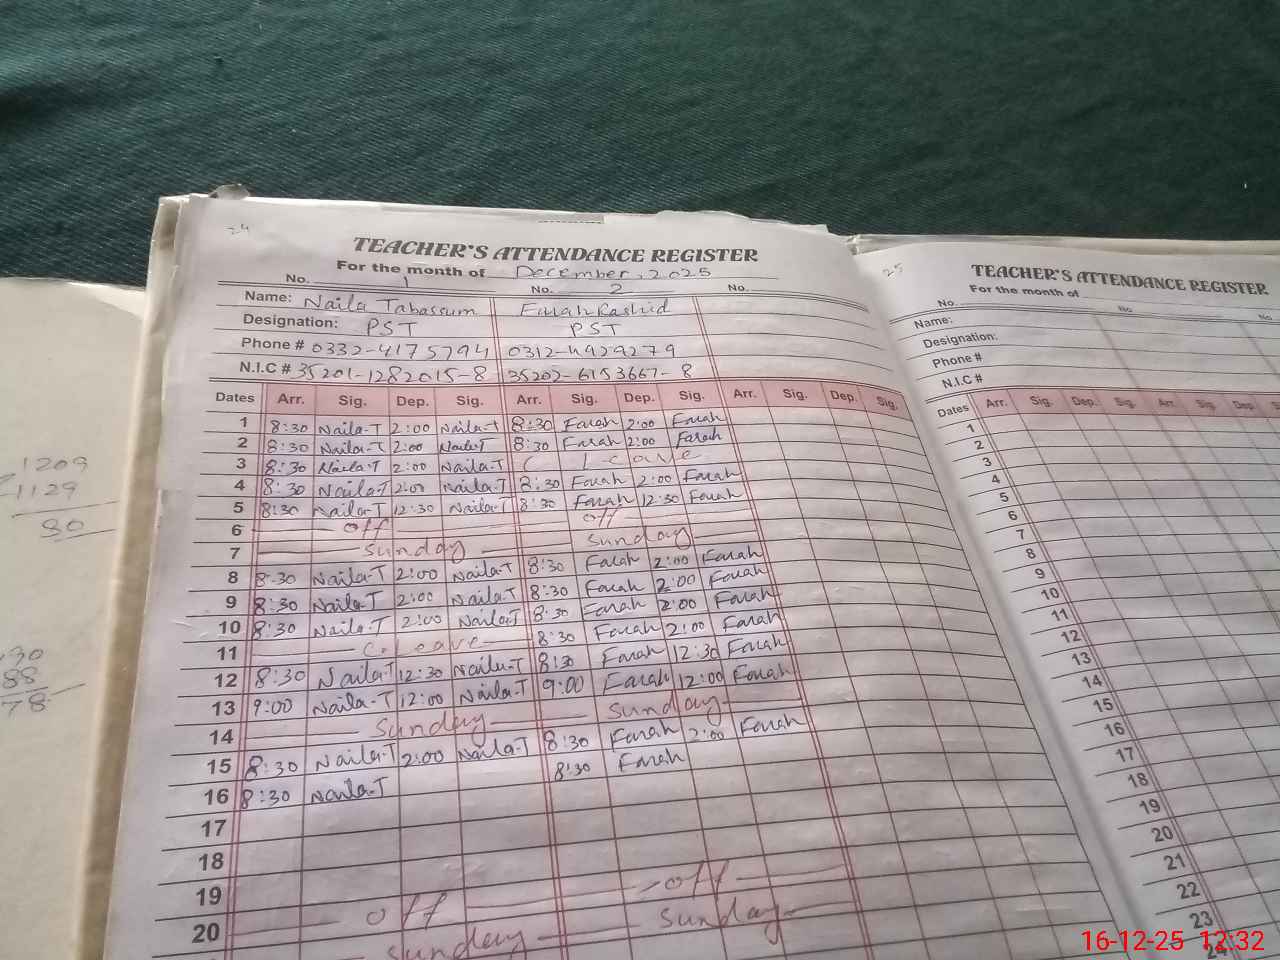 24
TEACHER'S ATTENDANCE REGISTER
For the month of December, 2025
No. 1 No. 2 No.
Name: Naila Tabassum Farah Rashid
Designation: PST PST
Phone # 0332-4175794 0312-4929279
N.I.C # 35201-1282015-8 35202-6153667-8
Dates Arr. Sig. Dep. Sig. Arr. Sig. Dep. Sig. Arr. Sig. Dep. Sig.
1 8:30 Naila-T 2:00 Naila-T 8:30 Farah 2:00 Farah
2 8:30 Naila-T 2:00 Naila-T 8:30 Farah 2:00 Farah
3 8:30 Naila-T 2:00 Naila-T C Leave
4 8:30 Naila-T 2:00 Naila-T 8:30 Farah 2:00 Farah
5 8:30 Naila-T 12:30 Naila-T 8:30 Farah 12:30 Farah
6 off off
7 Sunday Sunday
8 8:30 Naila-T 2:00 Naila-T 8:30 Farah 2:00 Farah
9 8:30 Naila-T 2:00 Naila-T 8:30 Farah 2:00 Farah
10 8:30 Naila-T 2:00 Naila-T 8:30 Farah 2:00 Farah
11 C. Leave 8:30 Farah 2:00 Farah
12 8:30 Naila-T 12:30 Naila-T 8:30 Farah 12:30 Farah
13 9:00 Naila-T 12:00 Naila-T 9:00 Farah 12:00 Farah
14 Sunday Sunday
15 8:30 Naila-T 2:00 Naila-T 8:30 Farah 2:00 Farah
16 8:30 Naila-T 8:30 Farah
17
18
19
20 off off
Sunday Sunday
25
TEACHER'S ATTENDANCE REGISTER
For the month of
No. No. No.
Name:
Designation:
Phone #
N.I.C #
Dates Arr. Sig. Dep. Sig. Arr. Sig. Dep.
1
2
3
4
5
6
7
8
9
10
11
12
13
14
15
16
17
18
19
20
21
22
23
24
1209
1129
80
88
78
16-12-25 12:32